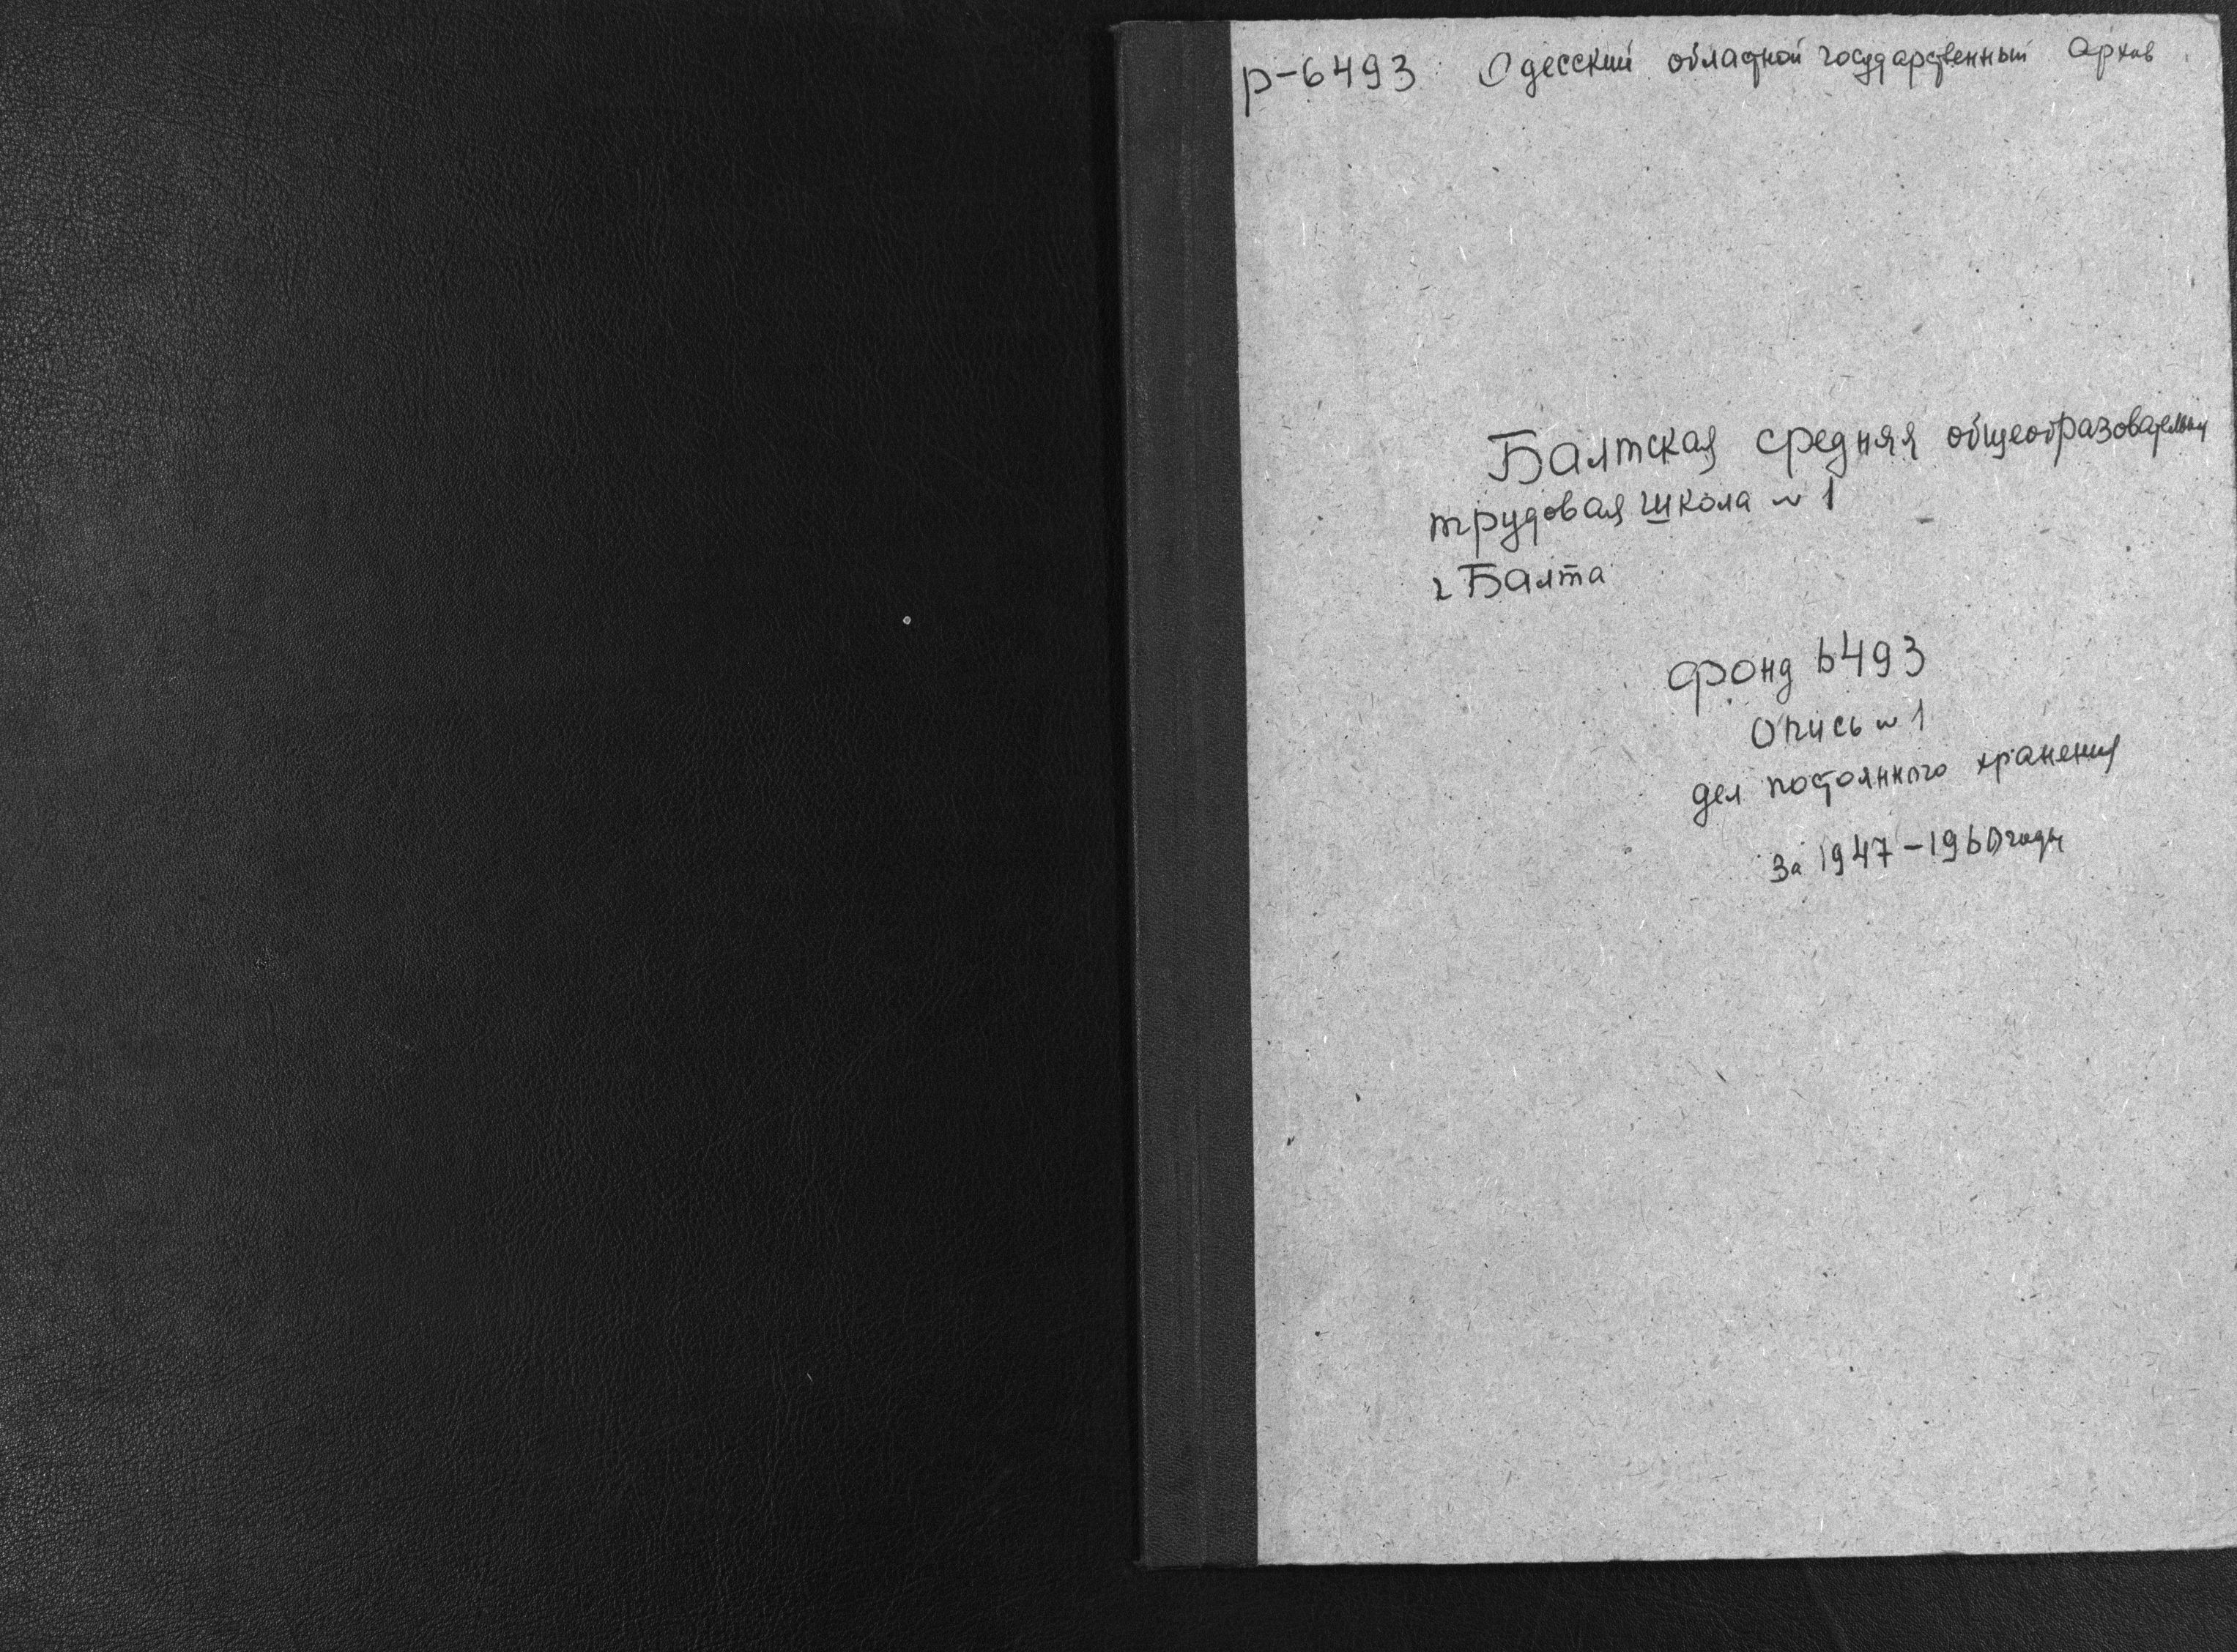 Р-6493 Одесский областной государственный архив
Балтская средняя общеобразовательная
трудовая школа № 1
г Балта
Фонд 6493
Опись № 1
дел постоянного хранения
за 1947-1960 годы